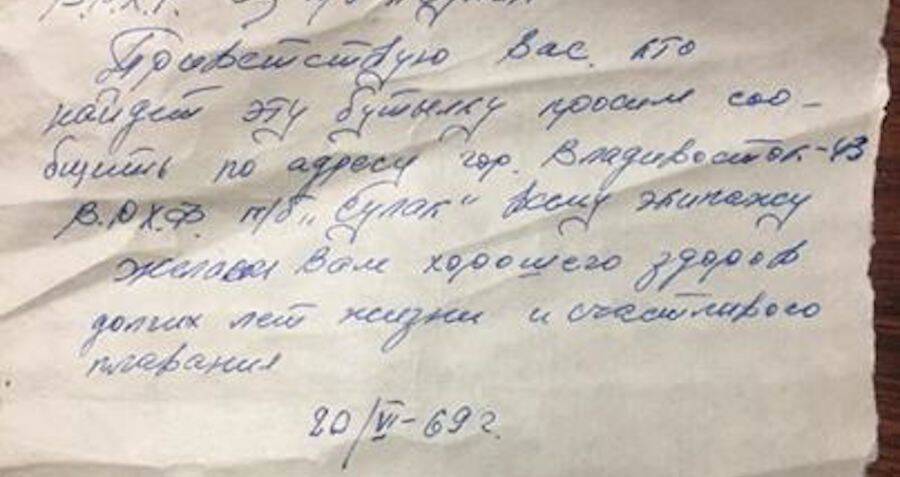 Приветствую Вас, кто
найдет эту бутылку просим соо-
бщить по адресу гор. Владивосток-43
В.Р.Х.Ф. п/б „Сулак“ всему экипажу
желаем Вам хорошего здоров
долгих лет жизни и счастливого
плавания
20/VI-69 г.